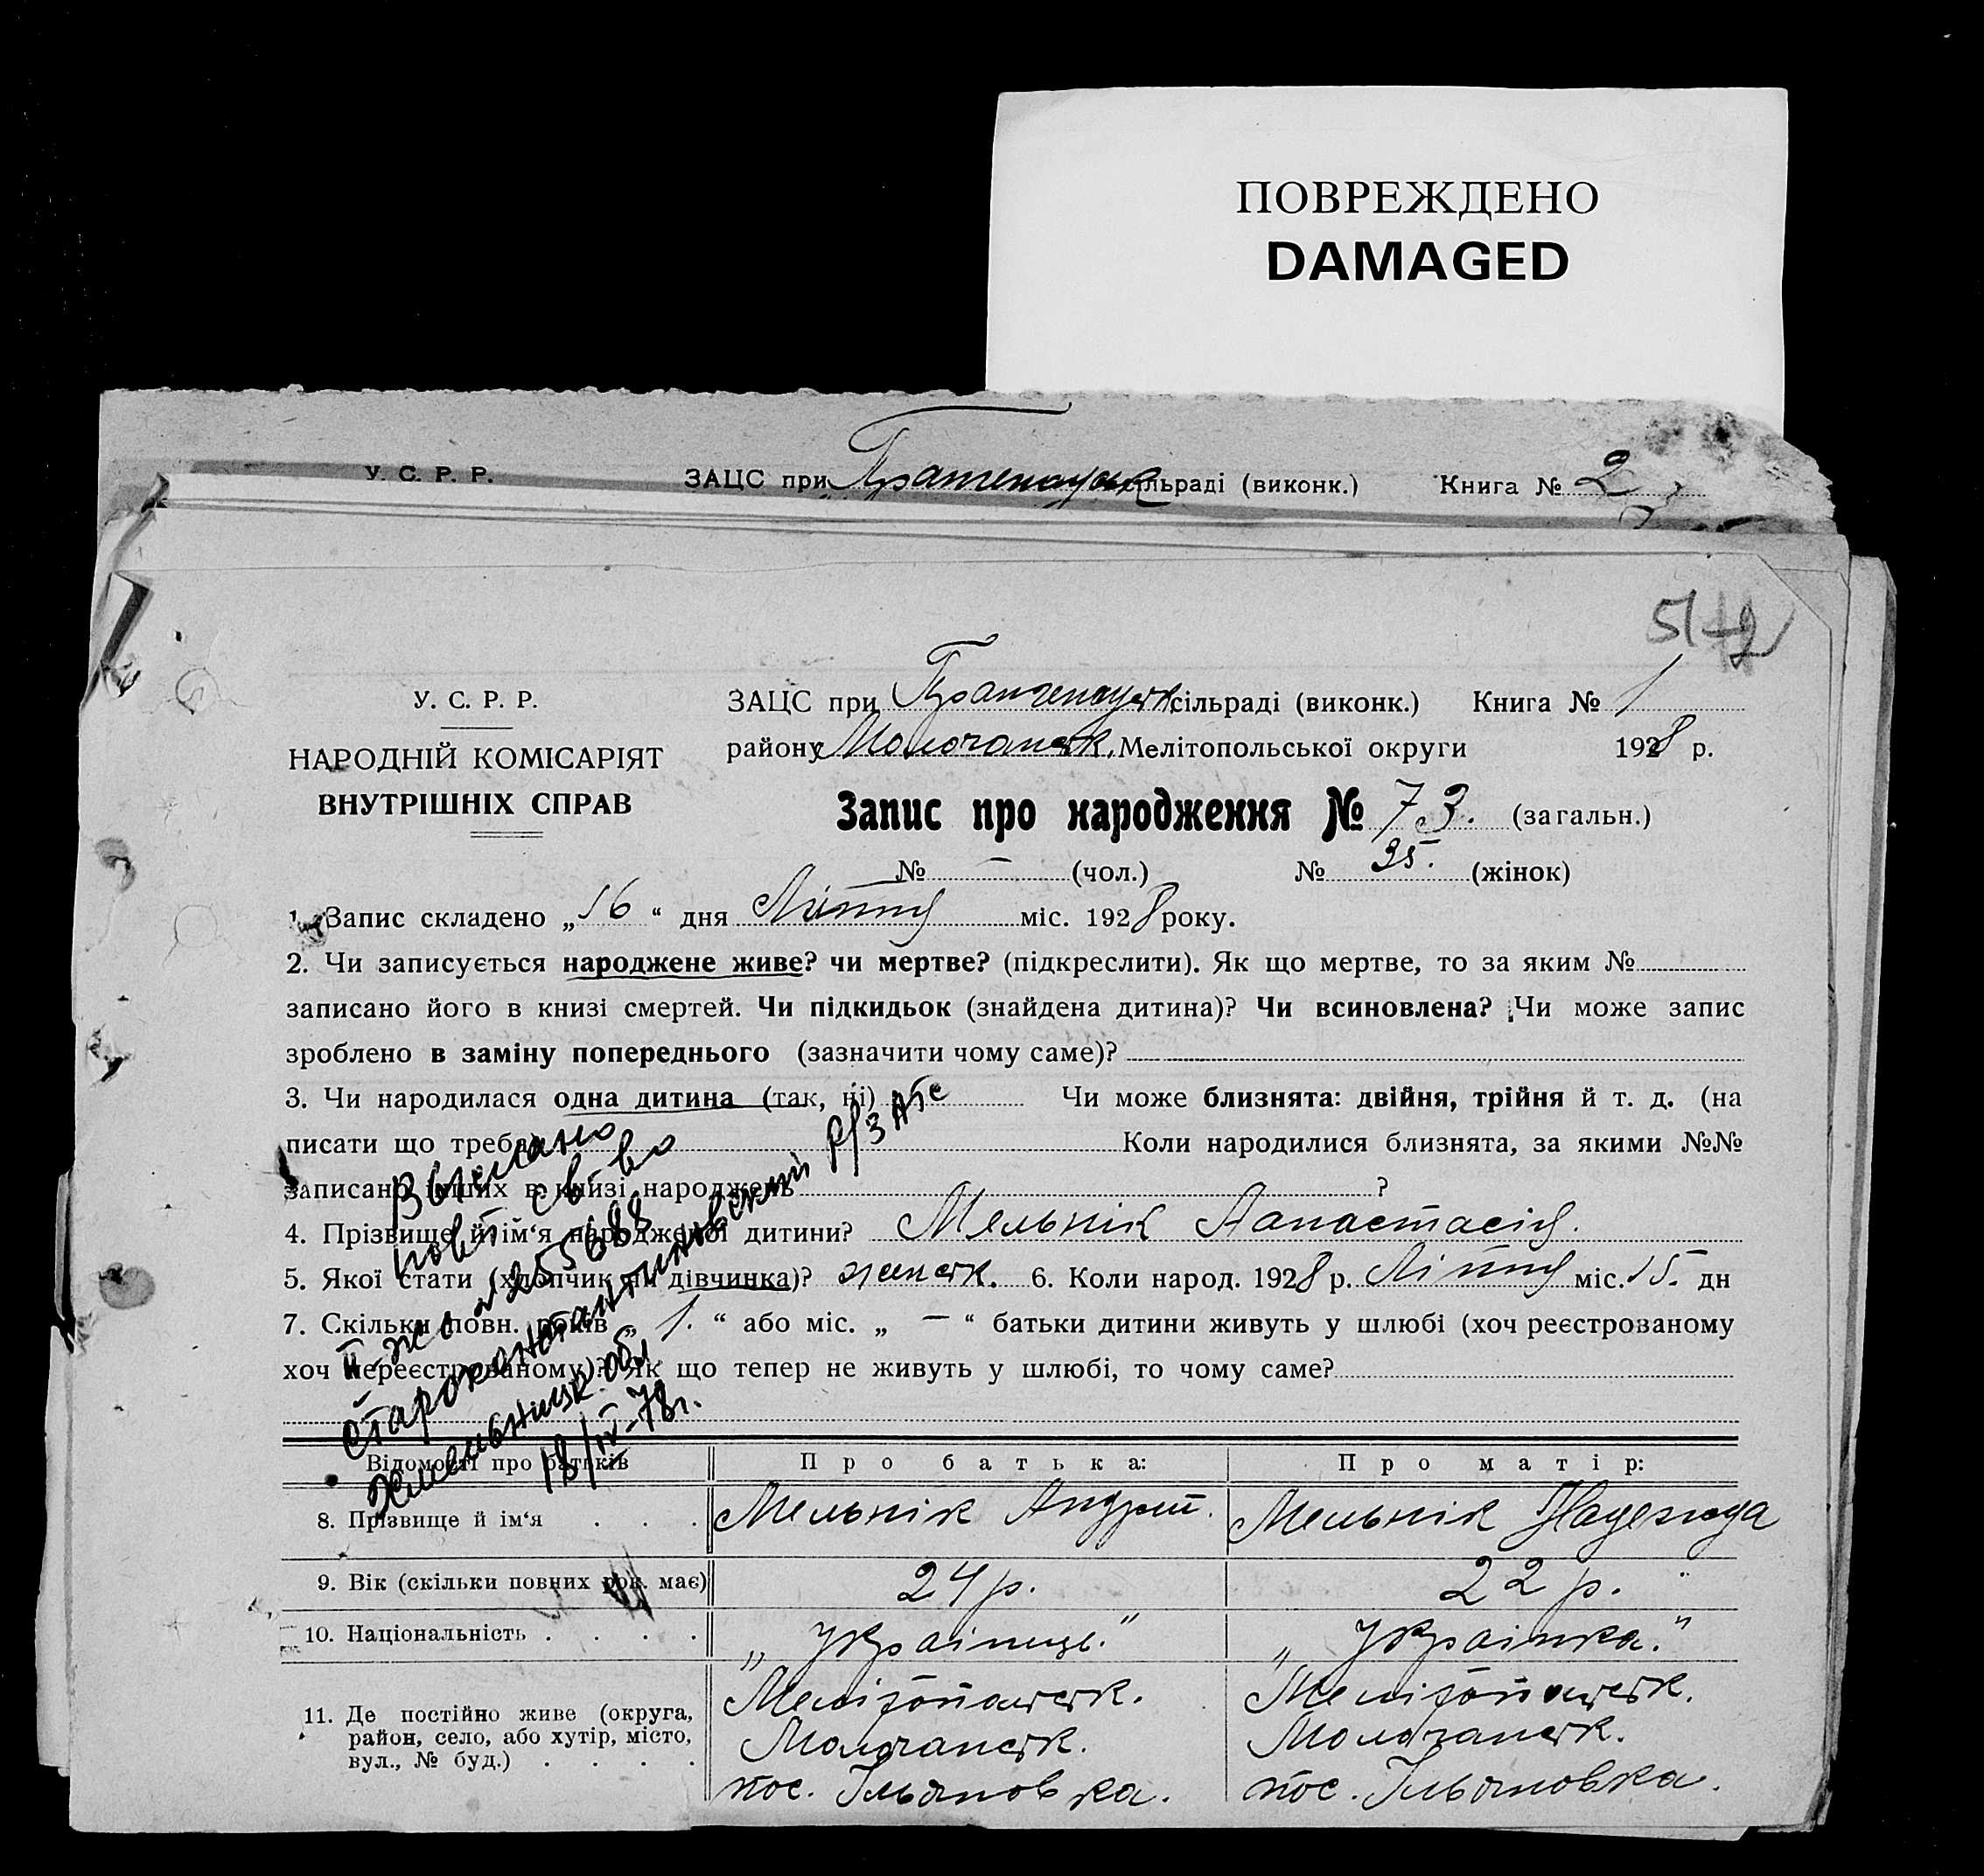 ПОВРЕЖДЕНО
DAMAGED
У. С. Р. Р. ЗАЦС при сільраді (виконк.) Книга № 2
У. С. Р. Р.
НАРОДНІЙ КОМІСАРІЯТ
ВНУТРІШНІХ СПРАВ
ЗАЦС при сільраді (виконк.) Книга № 1
району Молочанськ. Мелітопольської округи 1928 р.
Запис про народження № 73. (загальн.)
№ — (чол.) № 35. (жінок)
1. Запис складено „16“ дня Ліпня міс. 1928 року.
2. Чи записується народжене живе? чи мертве? (підкреслити). Як що мертве, то за яким №
записано його в книзі смертей. Чи підкидьок (знайдена дитина)? Чи всиновлена? Чи може запис
зроблено в заміну попереднього (зазначити чому саме)?
3. Чи народилася одна дитина (так, ні) Чи може близнята: двійня, трійня й т. д. (на
писати що треба) Коли народилися близнята, за якими №№
записано інших в книзі народжень ?
4. Прізвище й ім‘я народженої дитини? Мельнік Анастасія.
5. Якої статі (хлопчик чи дівчинка)? женськ. 6. Коли народ. 1928 р. Ліпня міс. 15. дн
7. Скільки повн. років „1.“ або міс. „ — “ батьки дитини живуть у шлюбі (хоч реєстрованому
хоч нереєстрованому)? Як що тепер не живуть у шлюбі, то чому саме?
Выслано
повт. св-во
II-ЖС № 255688
Староконстантиновский р/ЗАГС
Хмельницк. обл.
18/IV-78г.
Відомості про батьків Про батька: Про матір:
8. Прізвище й ім‘я . . . Мельнік Андрій. Мельнік Надежда
9. Вік (скільки повних рок. має) 24 р. 22 р.
10. Національність . . . . „Українець.“ „Українка.“
11. Де постійно живе (округа, район, село, або хутір, місто, вул., № буд.) . . . .
Мелітопольськ. Мелітопольськ.
Молочанськ. Молочанськ.
пос. Ільяновка. пос. Ільяновка.